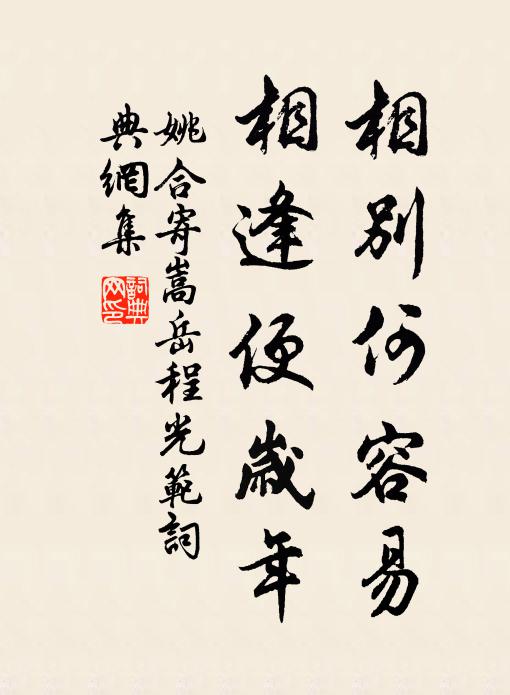 相別何容易
相逢便歲年
姚合寄嵩岳程光範詞
典網集
詞典网印